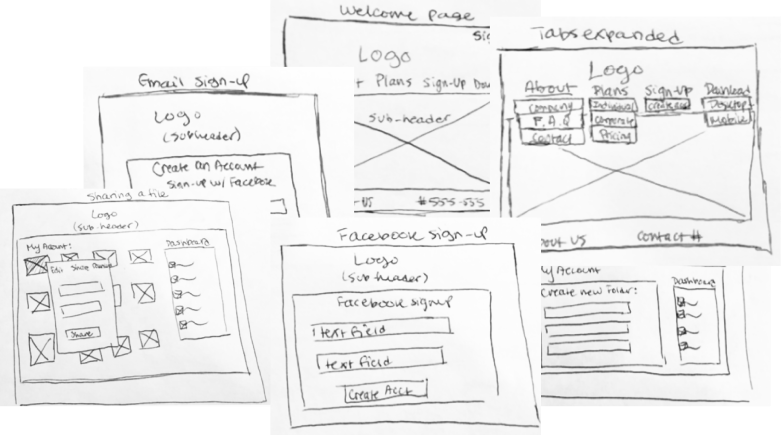 Welcome Page
Logo
Plans Sign-Up
Sub-header
#555-555
Tabs expanded
Logo
About Plans Sign-up Download
Company
F.A.Q
Contact
Individual
Corporate
Pricing
Desktop
Mobile
About US
Contact #
Email Sign-up
Logo
(Subheader)
Create an Account
Sign-up w/ Facebook
Sharing a file
Logo
(Sub-header)
My Account:
Edit Share
Share
Dashboard
Facebook Sign-up
Logo
(Sub header)
Facebook signup
text field
text field
Create Acct
My Account
Create new folder:
Dashboard